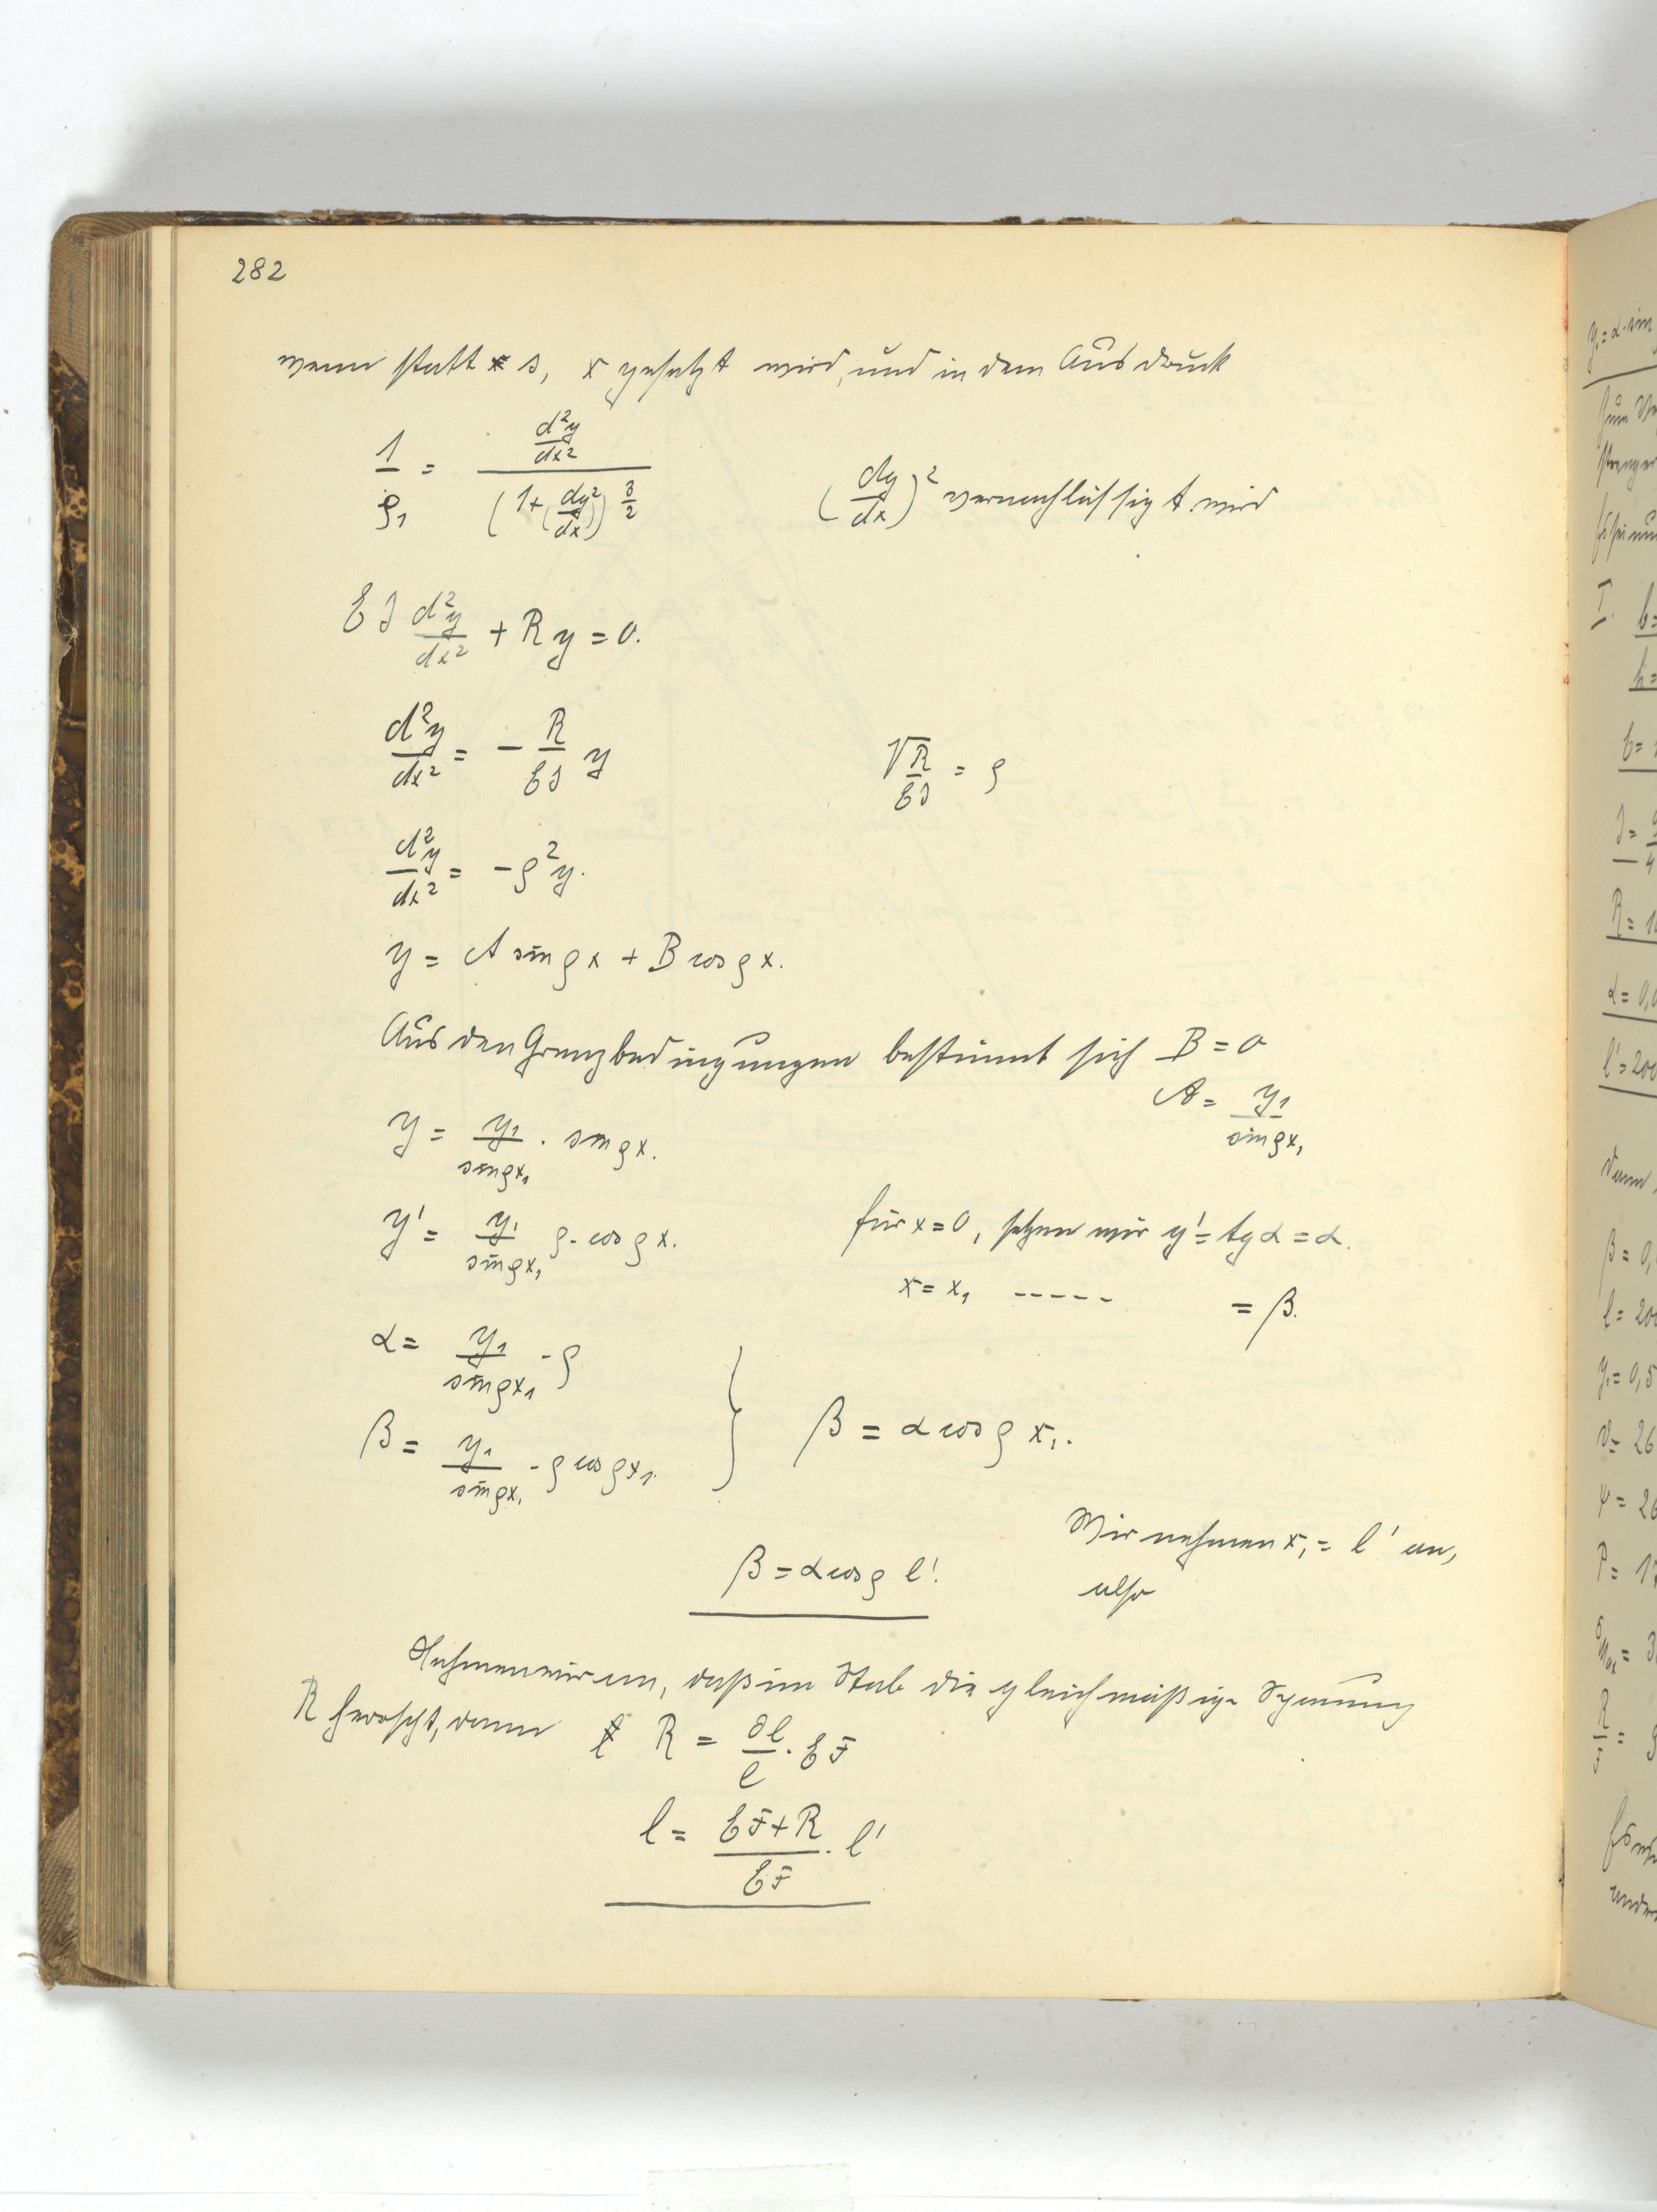 282
wenn statt s, x gesetzt wird, und in dem Ausdruck
1/ρ₁ = (d²y/dx²) / (1+(dy/dx)²)^(3/2)    (dy/dx)² vernachlässigt wird
EJ d²y/dx² + R y = 0.
d²y/dx² = - R/EJ y    √R/EJ = ρ
d²y/dx² = -ρ²y.
y = A sin ρx + B cos ρx.
Aus den Grenzbedingungen bestimmt sich B = 0
A = y₁/sin ρx₁
y = y₁/sin ρx₁ · sin ρx.
y' = y₁/sin ρx₁ ρ · cos ρx.    für x = 0, setzen wir y' = tg α = α.
x = x₁ ----- = β.
α = y₁/sin ρx₁ · ρ
β = y₁/sin ρx₁ · ρ cos ρx₁.    } β = α cos ρ x₁.
Wir nehmen x₁ = l' an,
also
β = α cos ρ l'.
Nehmen wir an, daß im Stab die gleichmäßige Spannung
R herrscht, dann R = ∂l/l · EF
l = (EF+R)/EF · l'
y₁ = α · sin
I.
b =
h =
E =
J =
R = 1
α = 0,0
l' = 200
dann
β = 0,
l = 200
y₁ = 0,5
ψ = 26
P = 17
R